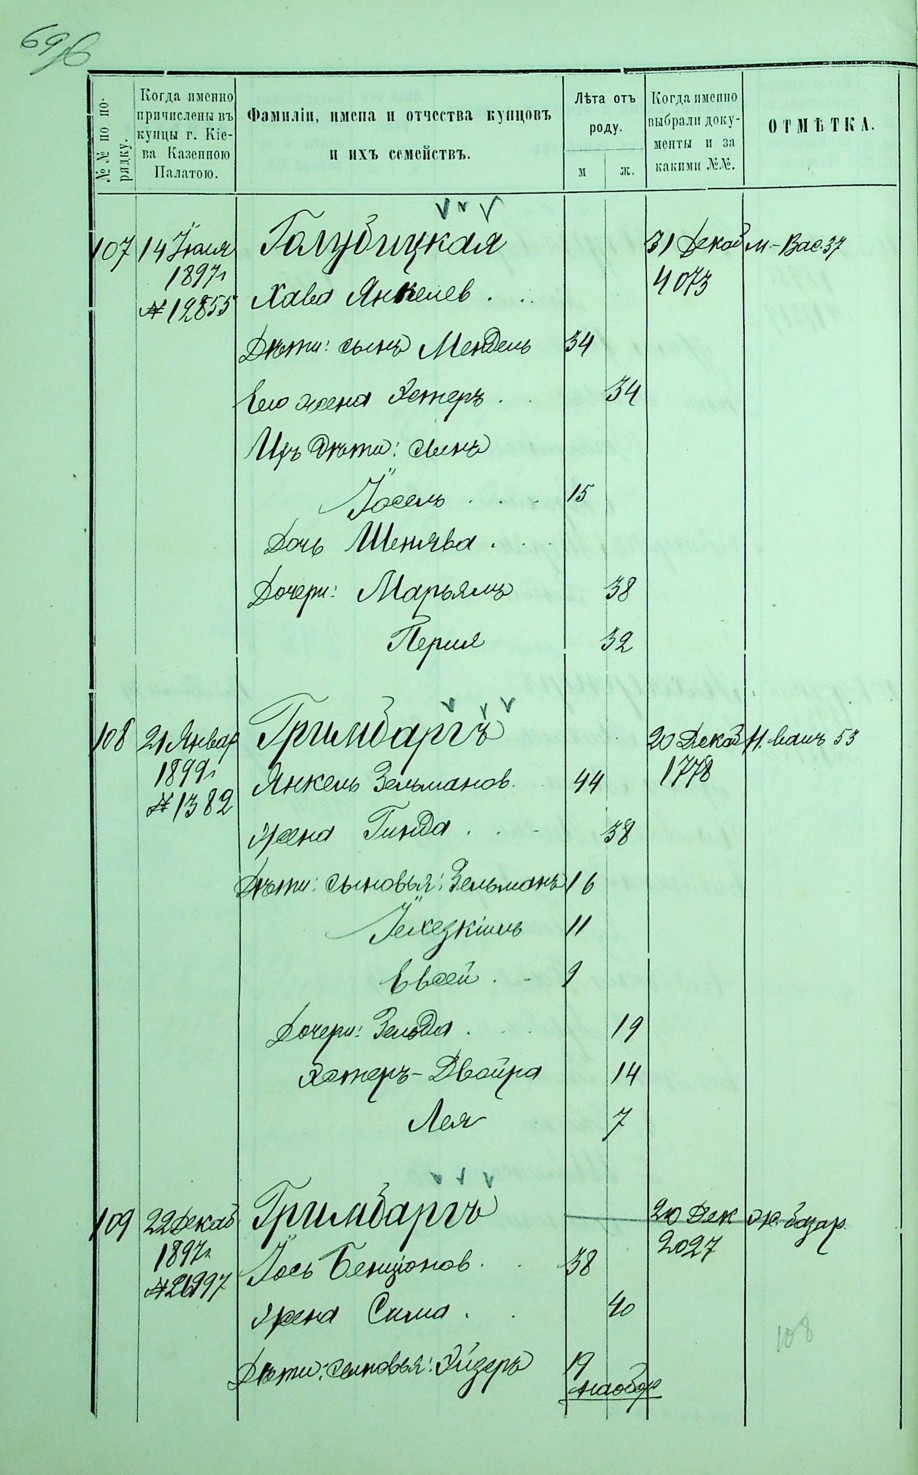 69
№№ по по-
рядку.
Когда именно
причислены въ
купцы г. Кіе-
ва Казенною
Палатою.
Фамиліи, имена и отчества купцовъ
и ихъ семействъ.
Лѣта отъ
роду.
м
ж.
Когда именно
выбрали доку-
менты и за
какими №№.
ОТМѢТКА.
107 14 Іюля Голубицкая 31 Декаб М-Вас 37
1897г 4073
№ 12855 Хава Янкелев
Дѣти: сынъ Мендель 34
Его жена Эстеръ 34
Ихъ дѣти: сынъ
Іосель 15
Дочь Шенява
Дочери: Марьямъ 38
Перля 32
108 21 Январ Гримбаргъ 20 Декаб Н. валъ 53
1899г 1778
№ 1382 Янкель Зельманов 44
Жена Гинда 38
Дѣти: сыновья: Зельманъ 16
Іехезкіиль 11
Евсей 9
Дочери: Зелда 19
Эстеръ-Двойра 14
Лея 7
109 22 Декаб Гримбаргъ 20 Дек базар
1897г 2027
Іось Бенціонов 38
Жена Сима 40
Дѣти: сыновья: Айзеръ 19
наобор
108